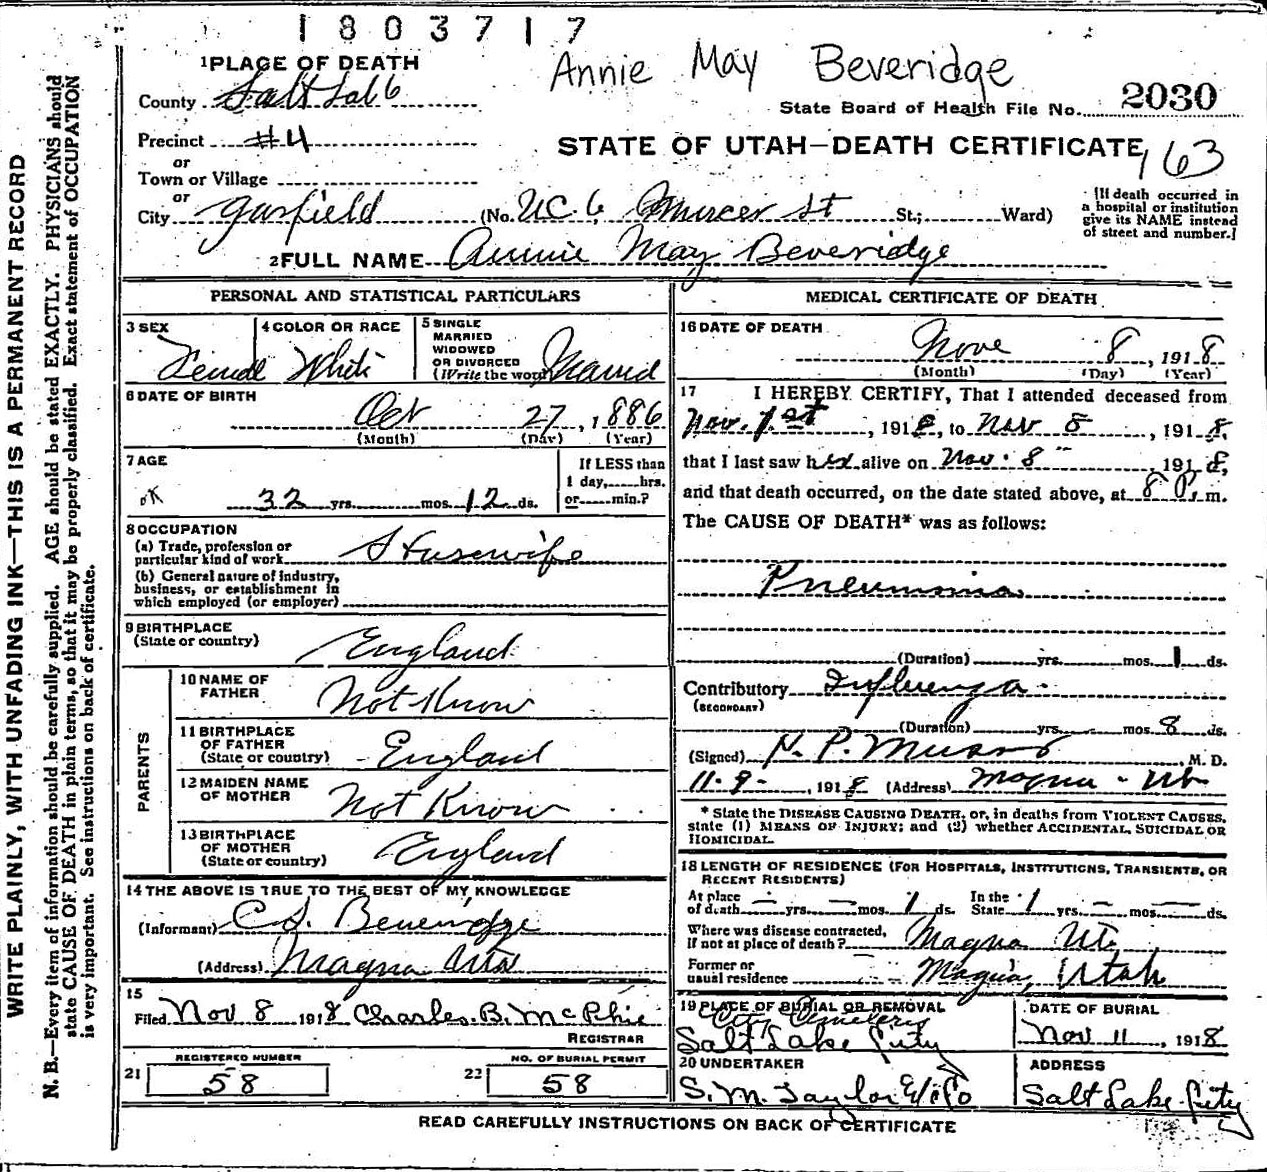 1803717
Annie May Beveridge
1 PLACE OF DEATH
County Salt Lake
State Board of Health File No. 2030
Precinct #4
STATE OF UTAH—DEATH CERTIFICATE
163
or
Town or Village
or
City Garfield (No. UC6, Mercer St St.; Ward)
[If death occurred in
a hospital or institution
give its NAME instead
of street and number.]
2 FULL NAME Annie May Beveridge
PERSONAL AND STATISTICAL PARTICULARS
3 SEX
Female
4 COLOR OR RACE
White
5 SINGLE
MARRIED
WIDOWED
OR DIVORCED
(Write the word) Married
6 DATE OF BIRTH
Oct 27, 1886
(Month) (Day) (Year)
7 AGE
OK 32 yrs. mos. 12 ds.
If LESS than
1 day, hrs.
or min.?
8 OCCUPATION
(a) Trade, profession or
particular kind of work Housewife
(b) General nature of industry,
business, or establishment in
which employed (or employer)
9 BIRTHPLACE
(State or country) England
PARENTS
10 NAME OF
FATHER Not Know
11 BIRTHPLACE
OF FATHER
(State or country) England
12 MAIDEN NAME
OF MOTHER Not Know
13 BIRTHPLACE
OF MOTHER
(State or country) England
14 THE ABOVE IS TRUE TO THE BEST OF MY KNOWLEDGE
(Informant) C.S. Beveridge
(Address) Magna
15
Filed Nov 8 1918 Charles B. McPhie
REGISTRAR
REGISTERED NUMBER
21 58
NO. OF BURIAL PERMIT
22 58
MEDICAL CERTIFICATE OF DEATH
16 DATE OF DEATH
Nove 8, 1918
(Month) (Day) (Year)
17 I HEREBY CERTIFY, That I attended deceased from
Nov. 1st, 1918, to Nov 8, 1918,
that I last saw her alive on Nov. 8", 1918,
and that death occurred, on the date stated above, at 8 P. m.
The CAUSE OF DEATH* was as follows:
Pneumonia
(Duration) yrs. mos. 1 ds.
Contributory Influenza
(SECONDARY)
(Duration) yrs. mos. 8 ds.
(Signed) N. P. M. D.
11-9-, 1918 (Address) Magna - Ut
* State the DISEASE CAUSING DEATH, or, in deaths from VIOLENT CAUSES,
state (1) MEANS OF INJURY; and (2) whether ACCIDENTAL, SUICIDAL OR
HOMICIDAL.
18 LENGTH OF RESIDENCE (FOR HOSPITALS, INSTITUTIONS, TRANSIENTS, OR
RECENT RESIDENTS)
At place
of death — yrs. — mos. 1 ds.
In the
State 1 — mos. — ds.
Where was disease contracted,
If not at place of death? Magna Ut.
Former or
usual residence Magna, Utah
19 PLACE OF BURIAL OR REMOVAL
City Cemetery
Salt Lake City
DATE OF BURIAL
Nov 11, 1918
20 UNDERTAKER
S. M. Taylor & Co
ADDRESS
Salt Lake City
READ CAREFULLY INSTRUCTIONS ON BACK OF CERTIFICATE
WRITE PLAINLY, WITH UNFADING INK—THIS IS A PERMANENT RECORD
N. B.—Every item of information should be carefully supplied. AGE should be stated EXACTLY. PHYSICIANS should
state CAUSE OF DEATH in plain terms, so that it may be properly classified. Exact statement of OCCUPATION
is very important. See instructions on back of certificate.